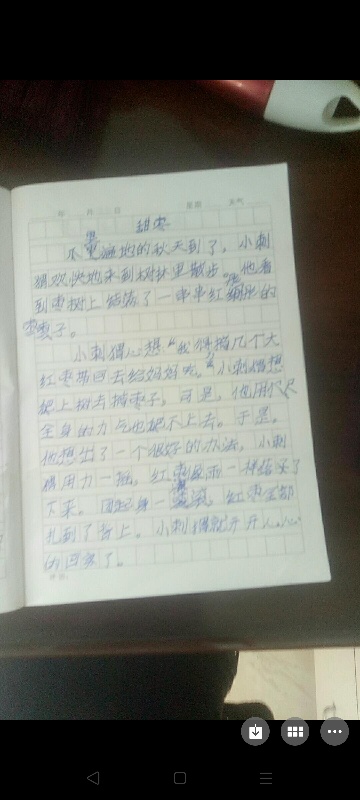 年 月 日 星期 天气
甜枣
遍地的秋天到了，小刺
猬欢快地来到树林里散步。他看
到枣树上结满了一串串红彤彤的
枣子。
小刺猬心想"我得摘几个大
红枣带回去给妈妈吃。"小刺猬想
爬上树去摘枣子，可是，他用尽
全身的力气也爬不上去。于是，
他想出了一个很好的办法，小刺
猬用力一摇，红枣像雨一样落了
下来。身一滚，红枣全都
扎到了背上。小刺猬就开开心心
的回家了。